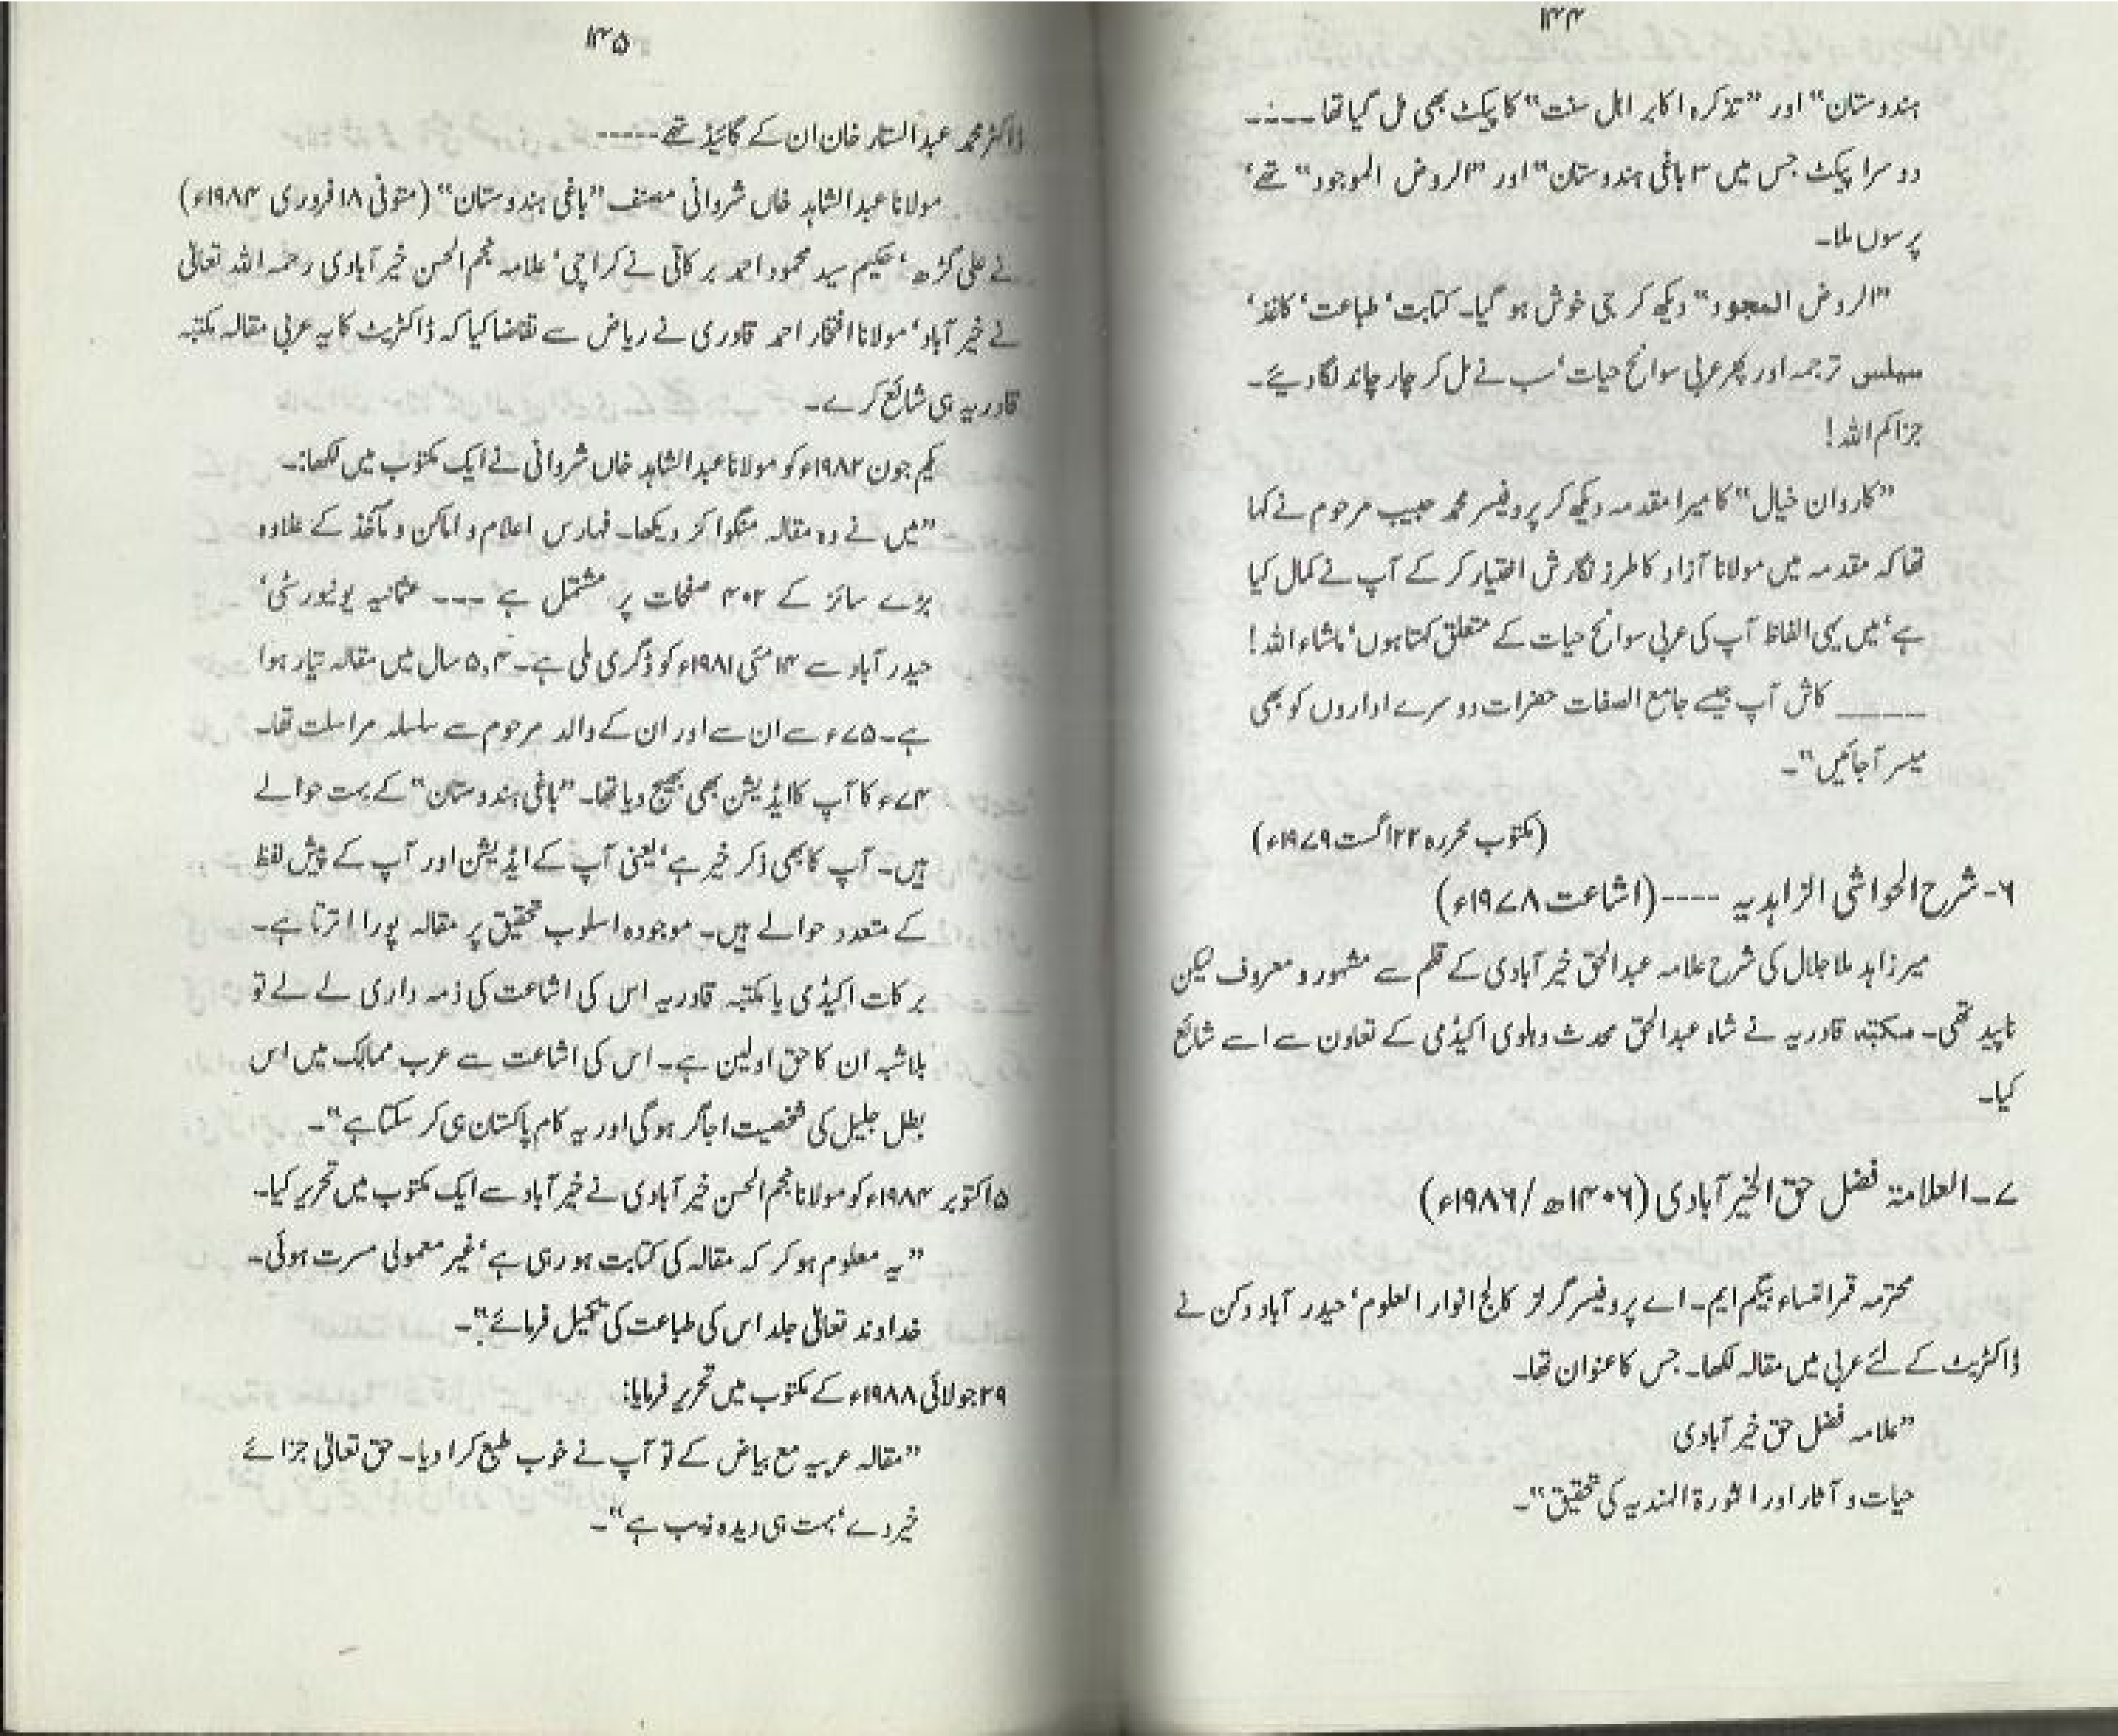 ۱۴۴
ہندوستان" اور "تذکرہ اکابر اہل سنت" کا پیکٹ بھی مل گیا تھا۔۔۔۔
دوسرا پیکٹ جس میں ۳ باغی ہندوستان" اور "الروض الموجود" تھے'
پرسوں ملا۔
"الروض المعجود" دیکھ کر جی خوش ہو گیا۔ کتابت' طباعت' کاغذ'
سلیس ترجمہ اور پھر عربی سوانح حیات' سب نے مل کر چار چاند لگا دیئے۔
جزاکم اللہ!
"کاروان خیال" کا میرا مقدمہ دیکھ کر پروفیسر محمد حبیب مرحوم نے کہا
تھا کہ مقدمہ میں مولانا آزاد کا طرز نگارش اختیار کر کے آپ نے کمال کیا
ہے' میں یہی الفاظ آپ کی عربی سوانح حیات کے متعلق کہتا ہوں' ماشاء اللہ!
____ کاش آپ جیسے جامع الصفات حضرات دوسرے اداروں کو بھی
میسر آجائیں"۔
(مکتوب محررہ ۲۲ اگست ۱۹۷۹ء)
۶۔ شرح الحواشی الزاہدیہ ---- (اشاعت ۱۹۷۸ء)
میر زاہد ملا جلال کی شرح علامہ عبدالحق خیر آبادی کے قلم سے مشہور و معروف لیکن
ناپید تھی۔ مکتبہ قادریہ نے شاہ عبدالحق محدث دہلوی اکیڈمی کے تعاون سے اسے شائع
کیا۔
۷۔ العلامۃ فضل حق الخیر آبادی (۱۴۰۶ھ / ۱۹۸۶ء)
محترمہ قمر النساء بیگم ایم۔ اے پروفیسر گرلز کالج انوار العلوم' حیدر آباد دکن نے
ڈاکٹریٹ کے لئے عربی میں مقالہ لکھا۔ جس کا عنوان تھا۔
"علامہ فضل حق خیر آبادی
حیات و آثار اور الثورۃ الہندیہ کی تحقیق"۔
۱۴۵
ڈاکٹر محمد عبدالستار خان ان کے گائیڈ تھے-----
مولانا عبدالشاہد خاں شروانی مصنف "باغی ہندوستان" (متوفی ۱۸ فروری ۱۹۸۴ء)
نے علی گڑھ' حکیم سید محمود احمد برکاتی نے کراچی' علامہ نجم الحسن خیر آبادی رحمہ اللہ تعالیٰ
نے خیر آباد' مولانا افتخار احمد قادری نے ریاض سے تقاضا کیا کہ ڈاکٹریٹ کا یہ عربی مقالہ مکتبہ
قادریہ ہی شائع کرے۔
یکم جون ۱۹۸۲ء کو مولانا عبدالشاہد خاں شروانی نے ایک مکتوب میں لکھا:۔
"میں نے وہ مقالہ منگوا کر دیکھا۔ فہارس اعلام و اماکن و مآخذ کے علاوہ
بڑے سائز کے ۴۰۲ صفحات پر مشتمل ہے --- عثمانیہ یونیورسٹی'
حیدر آباد سے ۱۴ مئی ۱۹۸۱ء کو ڈگری ملی ہے۔ ۵،۴ سال میں مقالہ تیار ہوا
ہے۔ ۷۵ء سے ان سے اور ان کے والد مرحوم سے سلسلہ مراسلت تھا۔
۷۴ء کا آپ کا ایڈیشن بھی بھیج دیا تھا۔ "باغی ہندوستان" کے بہت حوالے
ہیں۔ آپ کا بھی ذکر خیر ہے' یعنی آپ کے ایڈیشن اور آپ کے پیش لفظ
کے متعدد حوالے ہیں۔ موجودہ اسلوب تحقیق پر مقالہ پورا اترتا ہے۔
برکات اکیڈمی یا مکتبہ قادریہ اس کی اشاعت کی ذمہ داری لے لے تو
بلاشبہ ان کا حق اولین ہے۔ اس کی اشاعت سے عرب ممالک میں اس
بطل جلیل کی شخصیت اجاگر ہوگی اور یہ کام پاکستان ہی کر سکتا ہے"۔
۵ اکتوبر ۱۹۸۴ء کو مولانا نجم الحسن خیر آبادی نے خیر آباد سے ایک مکتوب میں تحریر کیا۔
"یہ معلوم ہو کر کہ مقالہ کی کتابت ہو رہی ہے' غیر معمولی مسرت ہوئی۔
خداوند تعالیٰ جلد اس کی طباعت کی تکمیل فرمائے"۔
۲۹ جولائی ۱۹۸۸ء کے مکتوب میں تحریر فرمایا:
"مقالہ عربیہ مع بیاض کے تو آپ نے خوب طبع کرا دیا۔ حق تعالیٰ جزائے
خیر دے' بہت ہی دیدہ زیب ہے"۔